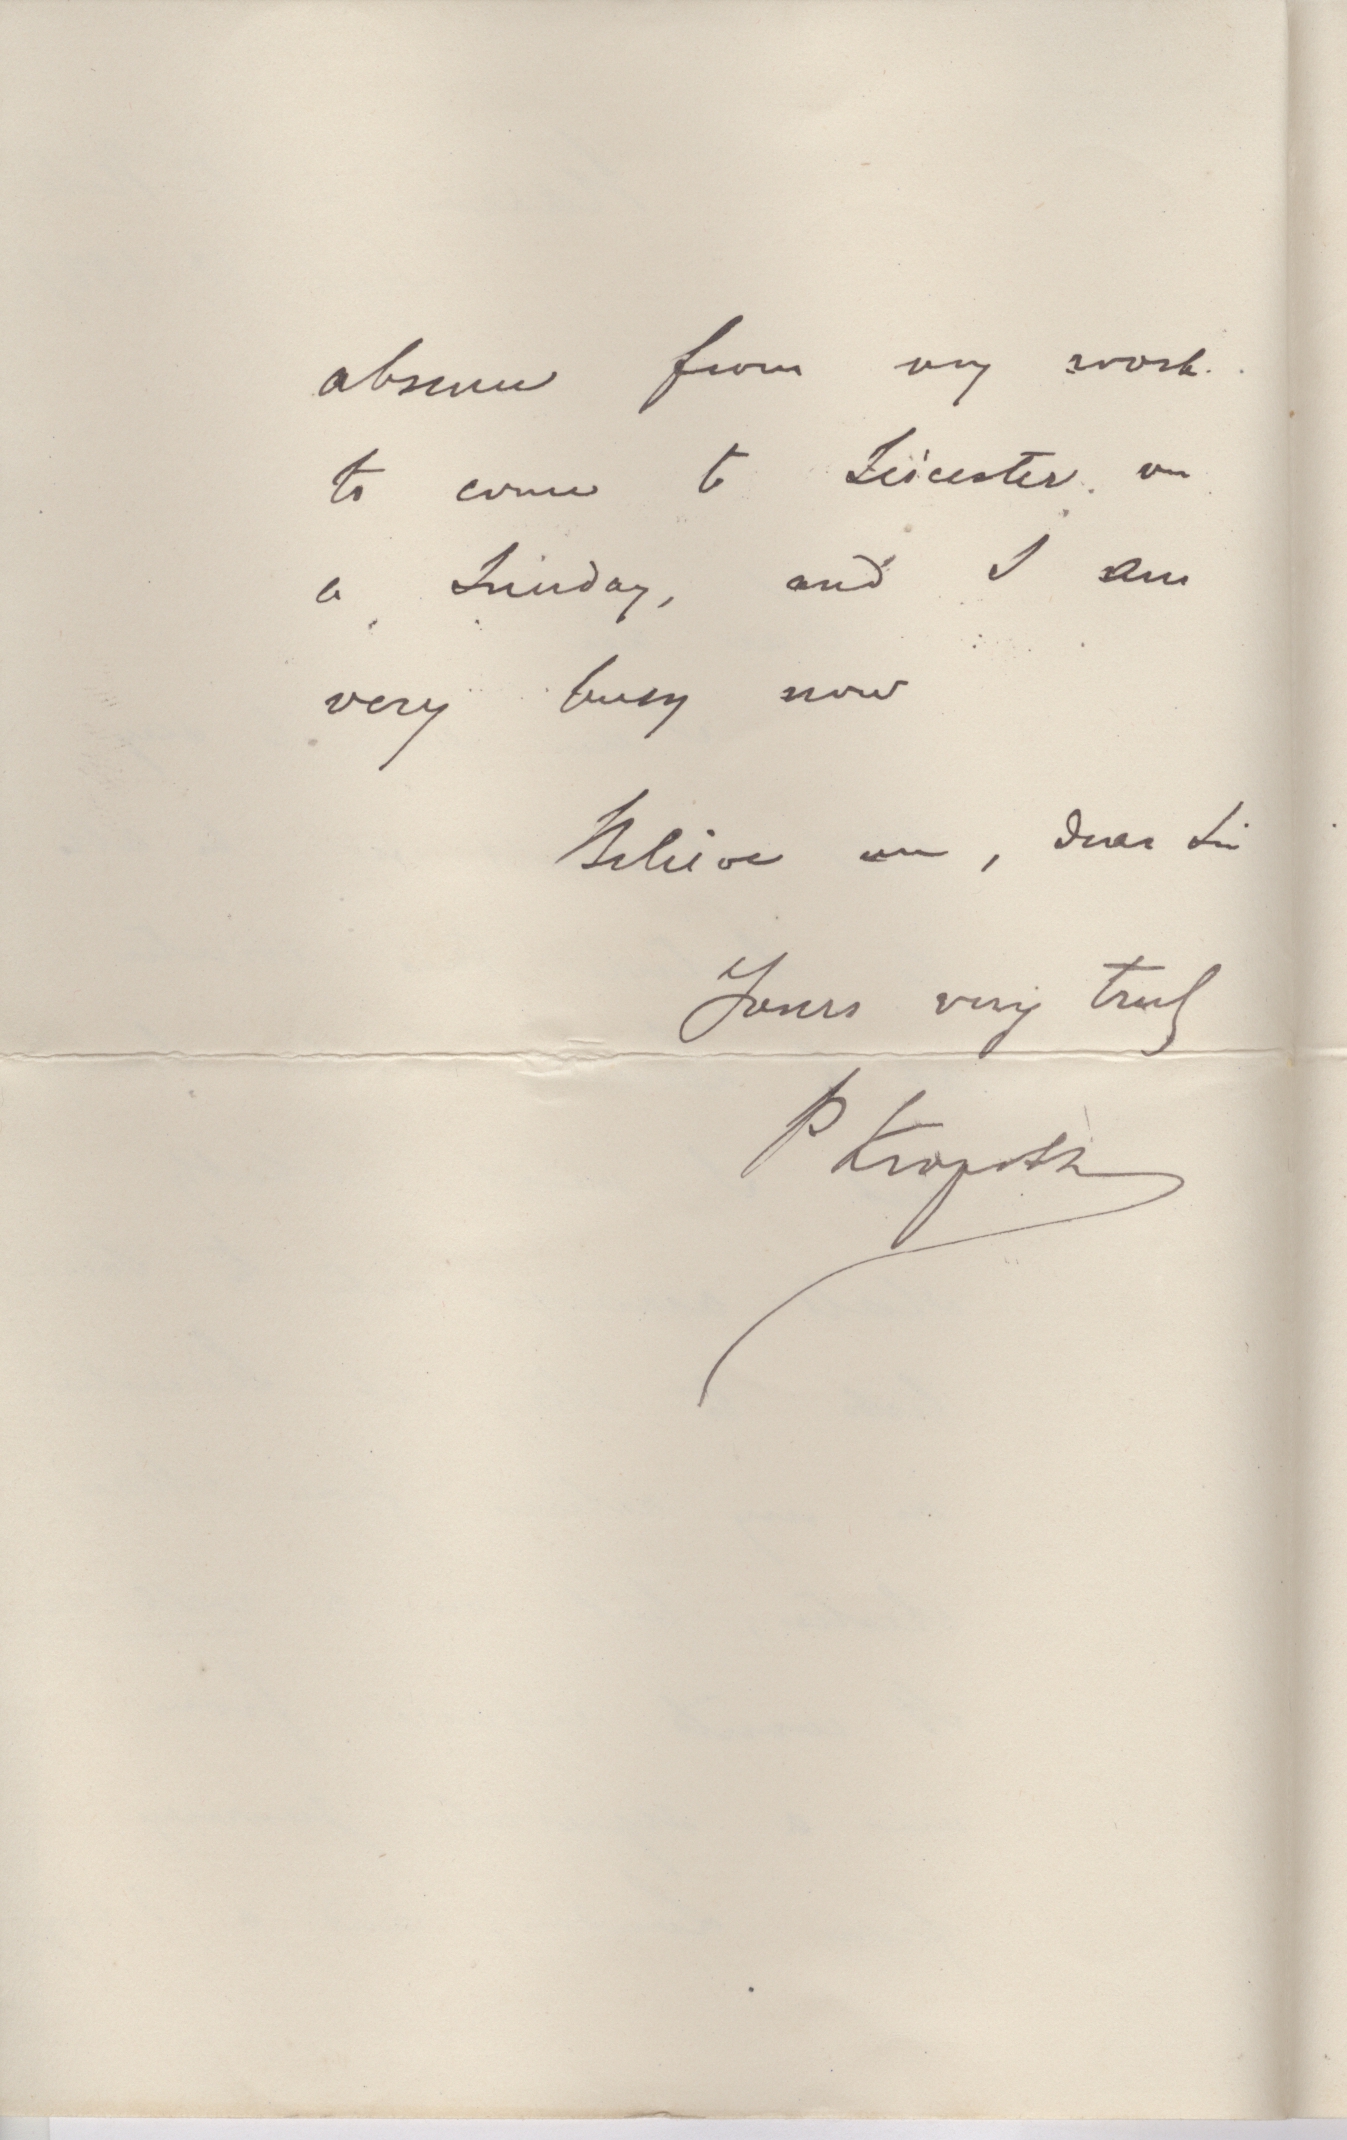 absence from my work
to come to Leicester on
a Sunday, and I am
very busy now
Believe me, dear Sir
Yours very truly
P Kropotkin